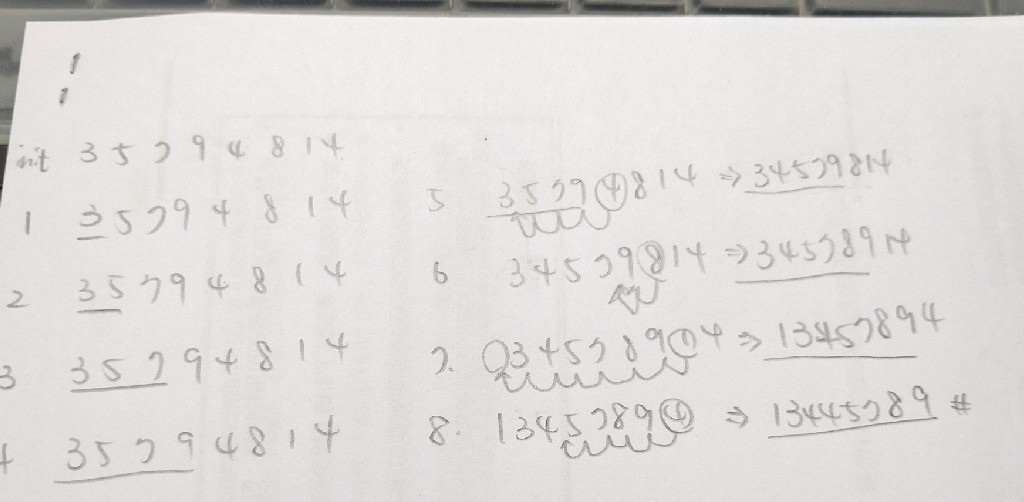 init 3 5 7 9 4 8 1 4
1 3 5 7 9 4 8 1 4
2 3 5 7 9 4 8 1 4
3 3 5 7 9 4 8 1 4
4 3 5 7 9 4 8 1 4
5 3 5 7 9 4 8 1 4 ⇒ 3 4 5 7 9 8 1 4
6 3 4 5 7 9 8 1 4 ⇒ 3 4 5 7 8 9 1 4
7. 3 4 5 7 8 9 1 4 ⇒ 1 3 4 5 7 8 9 4
8. 1 3 4 5 7 8 9 4 ⇒ 1 3 4 4 5 7 8 9 #